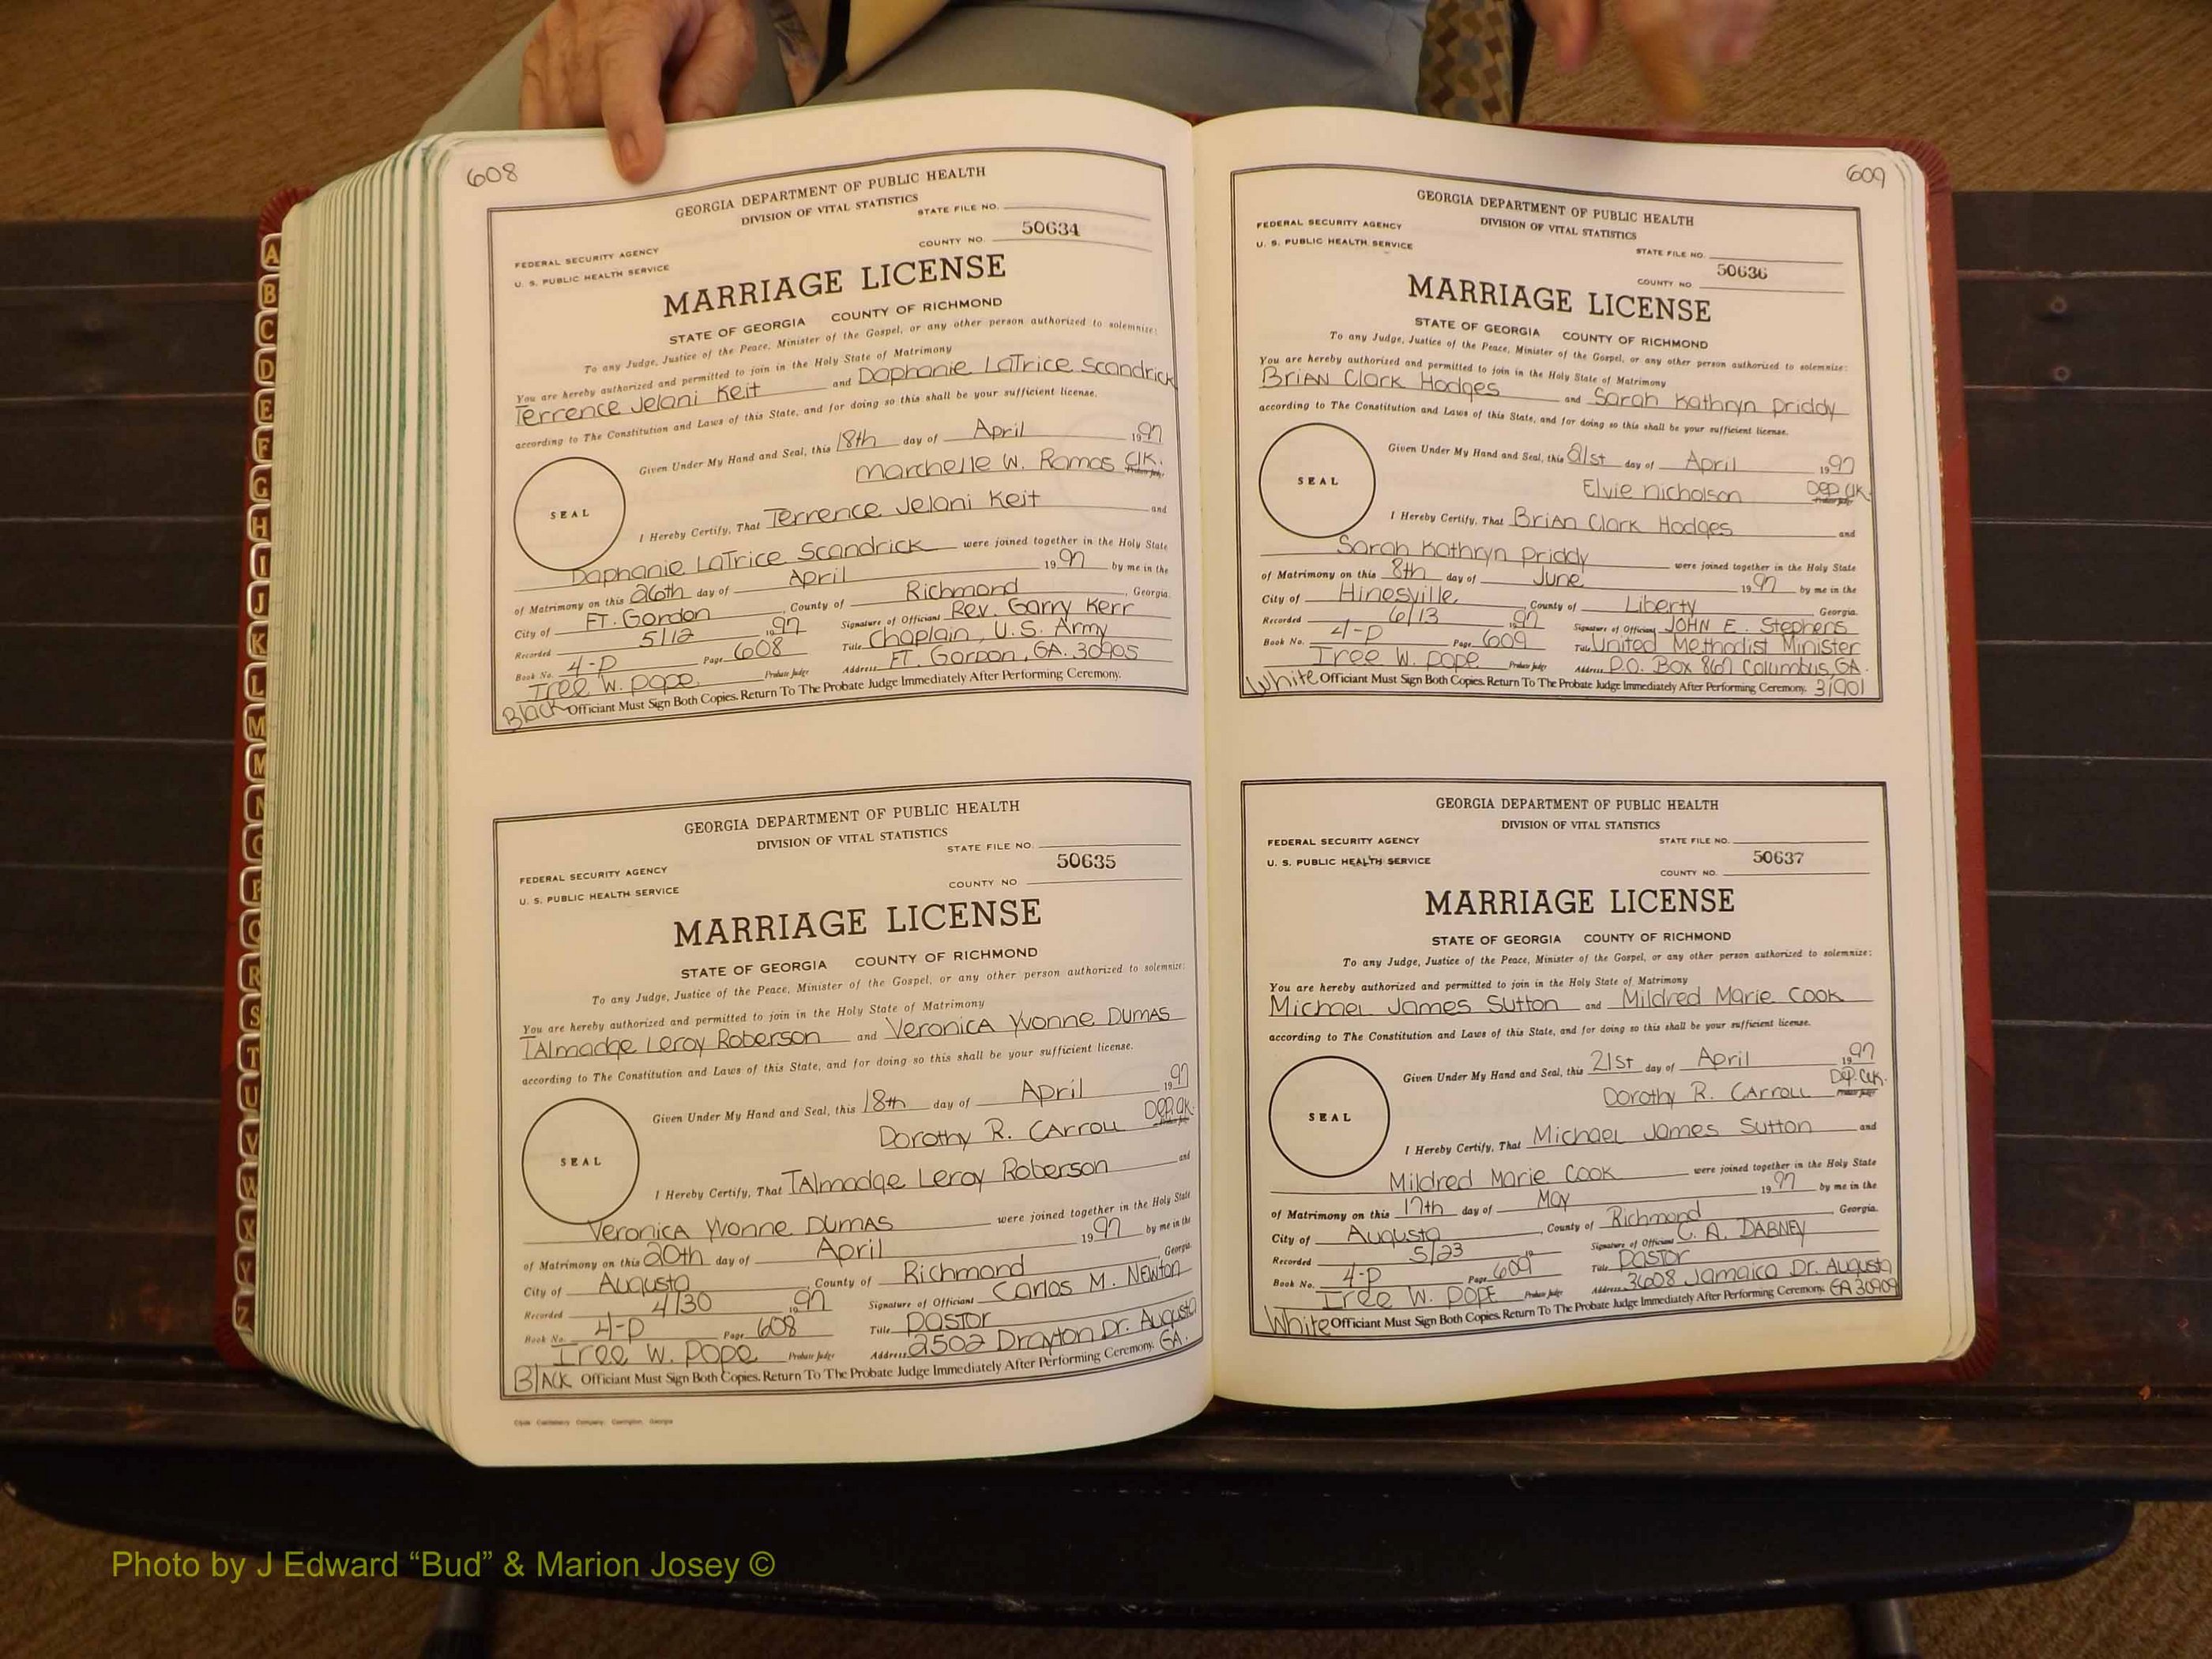 608
GEORGIA DEPARTMENT OF PUBLIC HEALTH
DIVISION OF VITAL STATISTICS
STATE FILE NO.
50634
FEDERAL SECURITY AGENCY COUNTY NO.
U. S. PUBLIC HEALTH SERVICE
MARRIAGE LICENSE
STATE OF GEORGIA COUNTY OF RICHMOND
To any Judge, Justice of the Peace, Minister of the Gospel, or any other person authorized to solemnize:
You are hereby authorized and permitted to join in the Holy State of Matrimony
Terrence Jelani Keit and Daphanie LaTrice Scandrick
according to The Constitution and Laws of this State, and for doing so this shall be your sufficient license.
Given Under My Hand and Seal, this 18th day of April 1997
Marchelle W. Ramos Clk.
SEAL
I Hereby Certify, That Terrence Jelani Keit and
Daphanie LaTrice Scandrick were joined together in the Holy State
of Matrimony on this 26th day of April 1997 by me in the
City of Ft. Gordon, County of Richmond, Georgia.
Recorded 5/12 1997 Signature of Officiant Rev. Garry Kerr
Book No. 4-P Page 608 Title Chaplain, U.S. Army
Iree W. Pope Probate Judge Address Ft. Gordon, GA. 30905
Black Officiant Must Sign Both Copies. Return To The Probate Judge Immediately After Performing Ceremony.
GEORGIA DEPARTMENT OF PUBLIC HEALTH
DIVISION OF VITAL STATISTICS
STATE FILE NO.
50635
FEDERAL SECURITY AGENCY COUNTY NO
U. S. PUBLIC HEALTH SERVICE
MARRIAGE LICENSE
STATE OF GEORGIA COUNTY OF RICHMOND
To any Judge, Justice of the Peace, Minister of the Gospel, or any other person authorized to solemnize:
You are hereby authorized and permitted to join in the Holy State of Matrimony
TAlmadge Leroy Roberson and Veronica Yvonne Dumas
according to The Constitution and Laws of this State, and for doing so this shall be your sufficient license.
Given Under My Hand and Seal, this 18th day of April 1997
Dorothy R. Carroll Dep. Clk.
SEAL
I Hereby Certify, That TAlmadge Leroy Roberson and
Veronica Yvonne Dumas were joined together in the Holy State
of Matrimony on this 20th day of April 1997 by me in the
City of Augusta, County of Richmond, Georgia.
Recorded 4/30 1997 Signature of Officiant Carlos M. Newton
Book No. 4-P Page 608 Title Pastor
Iree W. Pope Probate Judge Address 2502 Drayton Dr. Augusta GA.
Black Officiant Must Sign Both Copies. Return To The Probate Judge Immediately After Performing Ceremony.
609
GEORGIA DEPARTMENT OF PUBLIC HEALTH
DIVISION OF VITAL STATISTICS
FEDERAL SECURITY AGENCY
U. S. PUBLIC HEALTH SERVICE
STATE FILE NO.
50636
COUNTY NO
MARRIAGE LICENSE
STATE OF GEORGIA COUNTY OF RICHMOND
To any Judge, Justice of the Peace, Minister of the Gospel, or any other person authorized to solemnize:
You are hereby authorized and permitted to join in the Holy State of Matrimony
Brian Clark Hodges and Sarah Kathryn Priddy
according to The Constitution and Laws of this State, and for doing so this shall be your sufficient license.
Given Under My Hand and Seal, this 21st day of April 1997
Elvie Nicholson Dep. Clk.
SEAL
I Hereby Certify, That Brian Clark Hodges and
Sarah Kathryn Priddy were joined together in the Holy State
of Matrimony on this 8th day of June 1997 by me in the
City of Hinesville, County of Liberty Georgia.
Recorded 6/13 1997 Signature of Officiant JOHN E. Stephens
Book No. 4-P Page 609 Title United Methodist Minister
Iree W. Pope Probate Judge Address P.O. Box 867 Columbus, GA.
White Officiant Must Sign Both Copies. Return To The Probate Judge Immediately After Performing Ceremony. 31901
GEORGIA DEPARTMENT OF PUBLIC HEALTH
DIVISION OF VITAL STATISTICS
FEDERAL SECURITY AGENCY STATE FILE NO.
U. S. PUBLIC HEALTH SERVICE 50637
COUNTY NO.
MARRIAGE LICENSE
STATE OF GEORGIA COUNTY OF RICHMOND
To any Judge, Justice of the Peace, Minister of the Gospel, or any other person authorized to solemnize:
You are hereby authorized and permitted to join in the Holy State of Matrimony
Michael James Sutton and Mildred Marie Cook
according to The Constitution and Laws of this State, and for doing so this shall be your sufficient license.
Given Under My Hand and Seal, this 21st day of April 1997
Dorothy R. Carroll Dep. Clk.
SEAL
I Hereby Certify, That Michael James Sutton and
Mildred Marie Cook were joined together in the Holy State
of Matrimony on this 17th day of May 1997 by me in the
City of Augusta, County of Richmond Georgia.
Recorded 5/23 19 Signature of Officiant C. A. DABNEY
Book No. 4-P Page 609 Title Pastor
Iree W. Pope Probate Judge Address 3608 Jamaica Dr. Augusta
White Officiant Must Sign Both Copies. Return To The Probate Judge Immediately After Performing Ceremony. GA 30909
A
B
C
D
E
F
G
H
I
J
K
L
M
M
N
O
P
Q
R
S
T
U
V
W
X
Y
Z
Photo by J Edward “Bud” & Marion Josey ©